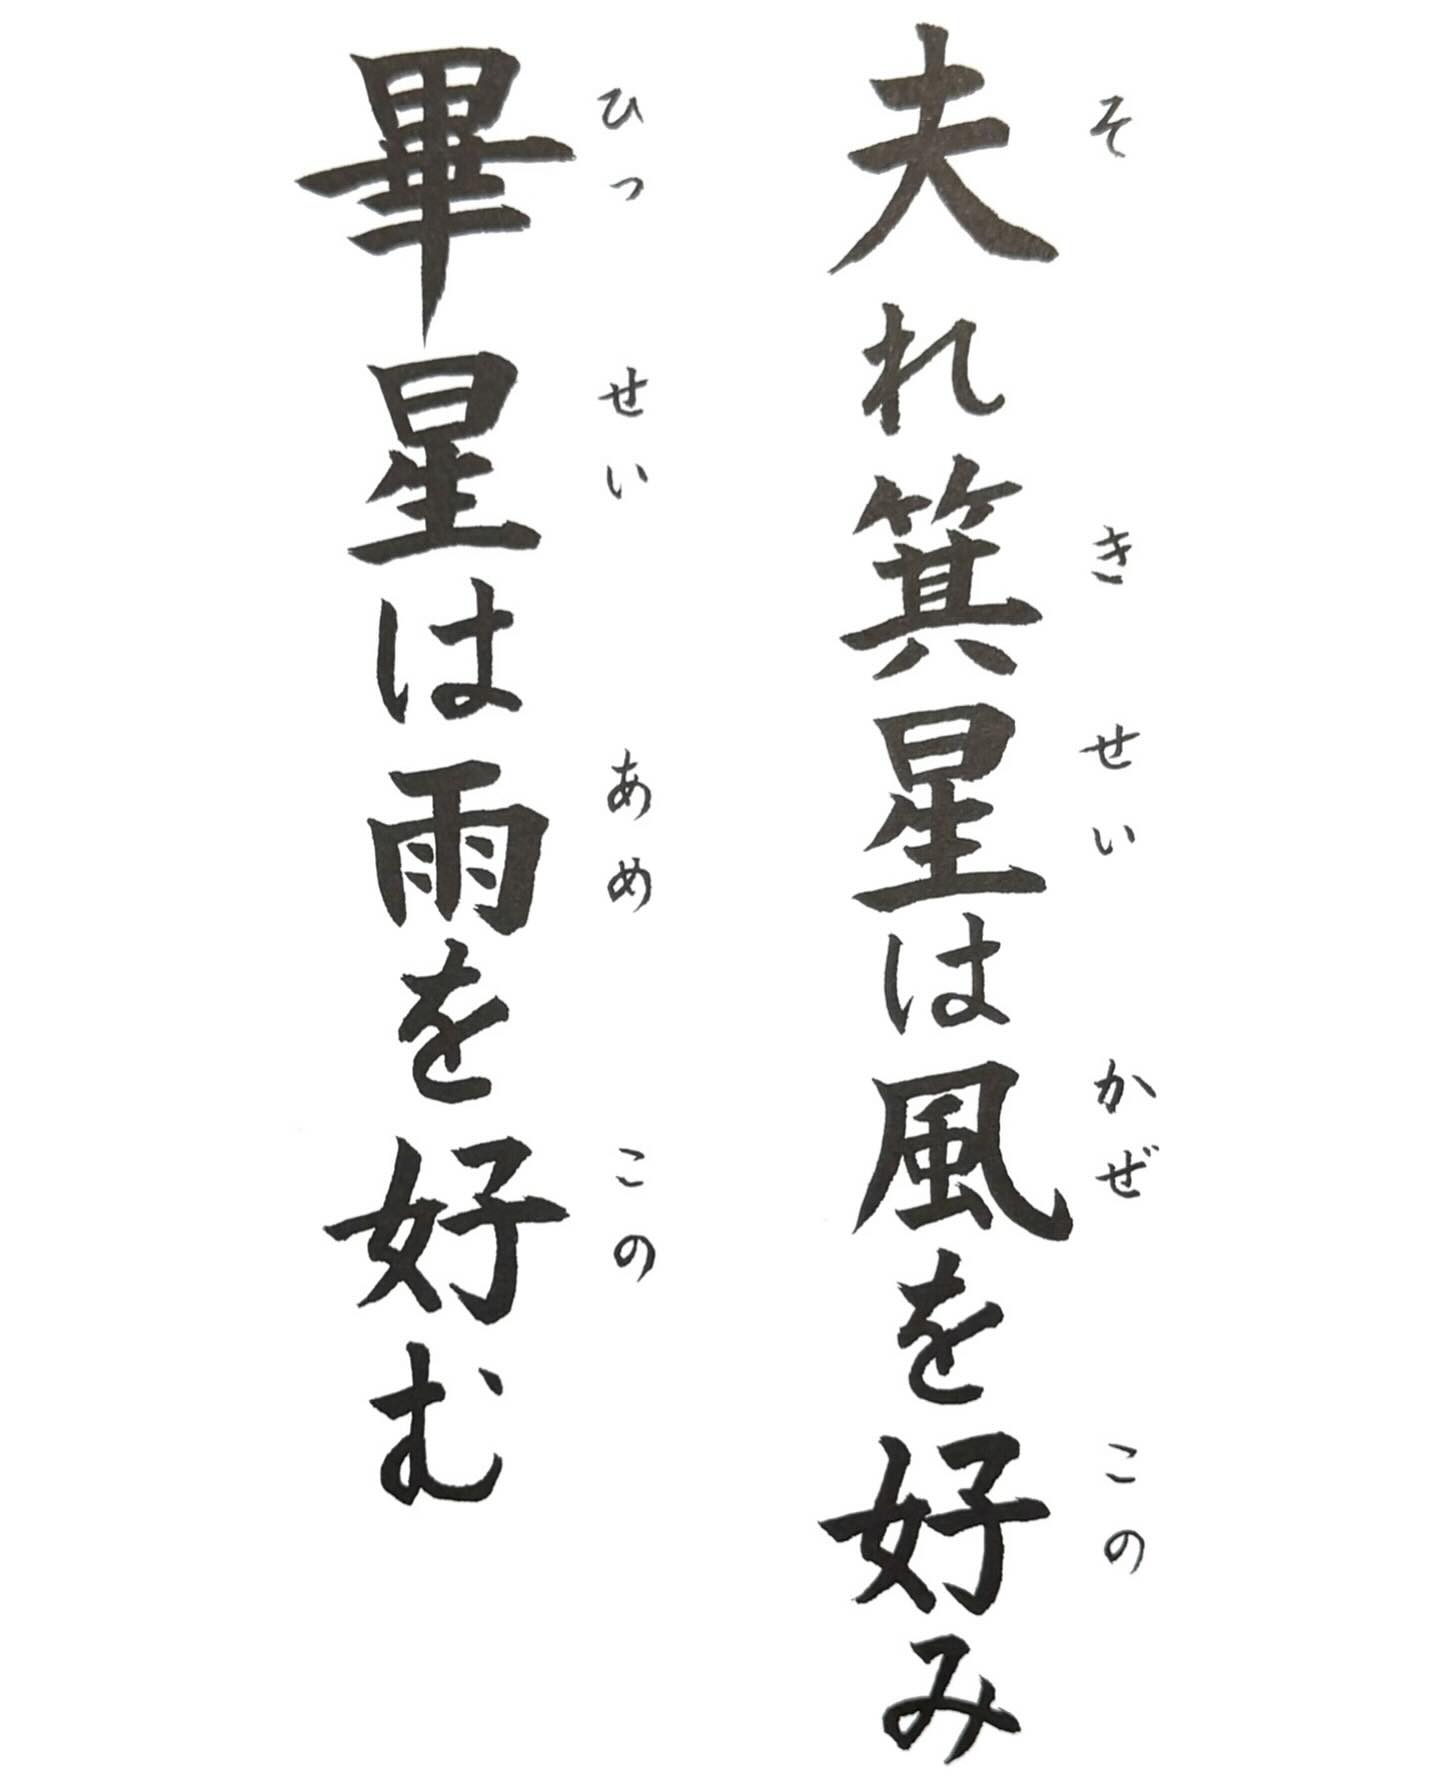 夫れ箕星は風を好み
そ きせい かぜ この
畢星は雨を好む
ひっせい あめ この